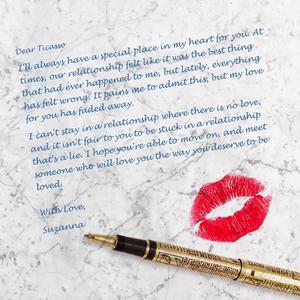 Dear Ticasso
I'll always have a special place in my heart for you. At
times, our relationship felt like it was the best thing
that had ever happened to me, but lately, everything
has felt wrong. It pains me to admit this, but my love
for you has faded away.
I can't stay in a relationship where there is no love,
and it isn't fair to you to be stuck in a relationship
that's a lie. I hope you're able to move on, and meet
someone who will love you the way you deserve to be
loved.
With Love,
Suzanna